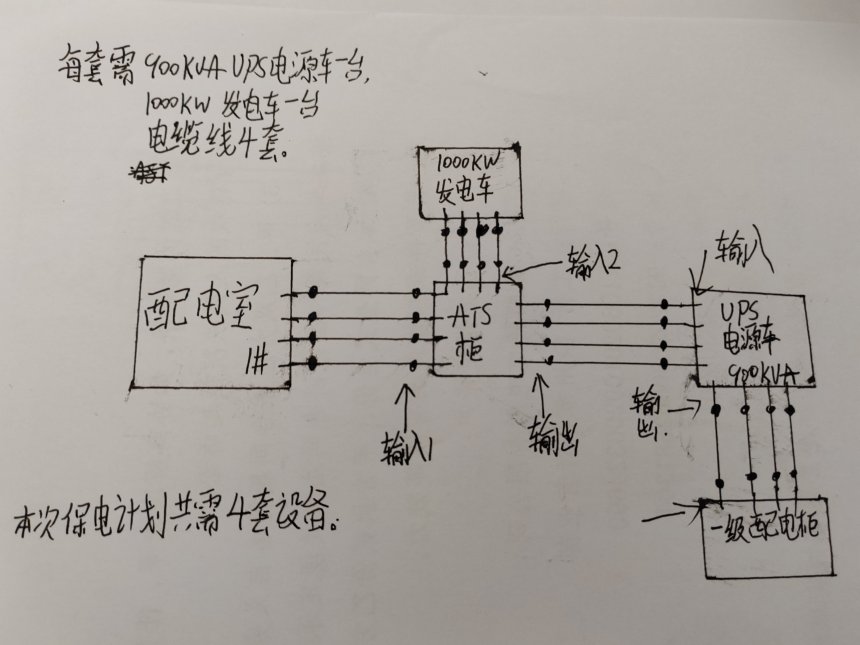 每套需 900KVA UPS电源车一台,
1000KW 发电车一台
电缆线4套。
1000KW
发电车
输入2
输入
配电室
1#
ATS
柜
UPS
电源车
900KVA
输入1
输出
输出
一级配电柜
本次保电计划共需4套设备。